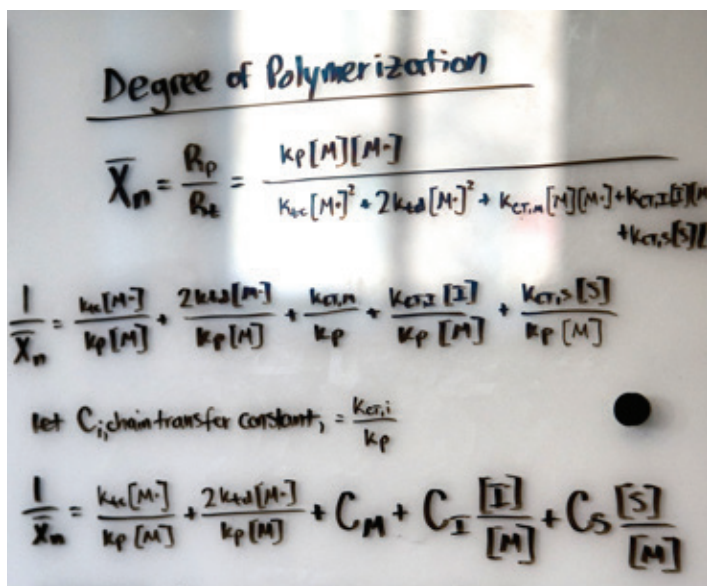 Degree of Polymerization
X̅n = Rp/Rt = kp[M][M·] / ktc[M·]² + 2ktd[M·]² + kCT,M[M][M·] + kCT,I[I][M
+ kCT,S[S][
1/X̅n = ktc[M·]/kp[M] + 2ktd[M·]/kp[M] + kCT,M/kp + kCT,I[I]/kp[M] + kCT,S[S]/kp[M]
Let Ci, chain transfer constant, = kCT,i/kp
1/X̅n = ktc[M·]/kp[M] + 2ktd[M·]/kp[M] + CM + CI [I]/[M] + CS [S]/[M]